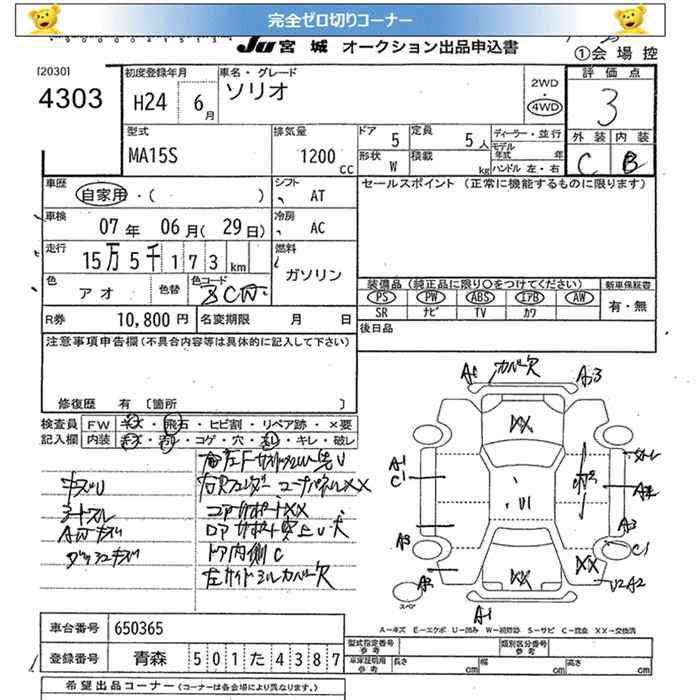 完全ゼロ切りコーナー
JU 宮城 オークション出品申込書
①会場控
[2030]
4303
初度登録年月
H24 6月
車名・グレード
ソリオ
2WD・4WD
評価点
3
外装 内装
C B
型式
MA15S
排気量
1200 cc
ドア 5
定員 5人
形状 W
積載 kg
ディーラー・並行
モデル年式 年
ハンドル 左・右
車歴
自家用・( )
シフト AT
セールスポイント (正常に機能するものに限ります)
車検
07年 06月(29日)
冷房 AC
走行
15万5千173km
燃料
ガソリン
色
アオ
色替
色コード
装備品 (純正品に限り○をつけてください)
新車保証書
PS PW ABS エアB AW
SR ナビ TV カワ
有・無
R券 10,800円
名変期限 月 日
後日品
注意事項申告欄 (不具合内容等は具体的に記入して下さい)
修復歴 有 〔箇所 〕
検査員記入欄
FW キズ・飛石・ヒビ割・リペア跡・×要
内装 キズ・汚レ・コゲ・穴・スレ・キレ・破レ
カバー欠
A1 A3
XX
キズU
シートスレ
AWキズ
ダッシュキズ
コアサポートXX
ドア内側C
左サイドシルカバー欠
A1
C1
A3
A3
C1
XX
XX
U2A2
A2
スペア
A1
A-キズ E-エクボ U-凹み W-補修跡 S-サビ C-腐食 XX-交換済
車台番号 650365
登録番号 青森 501た4387
型式指定番号 参考
類別区分番号 参考
車庫証明用 参考 長さ cm 幅 cm 高さ cm
希望出品コーナー (コーナーは各会場により異なります。)